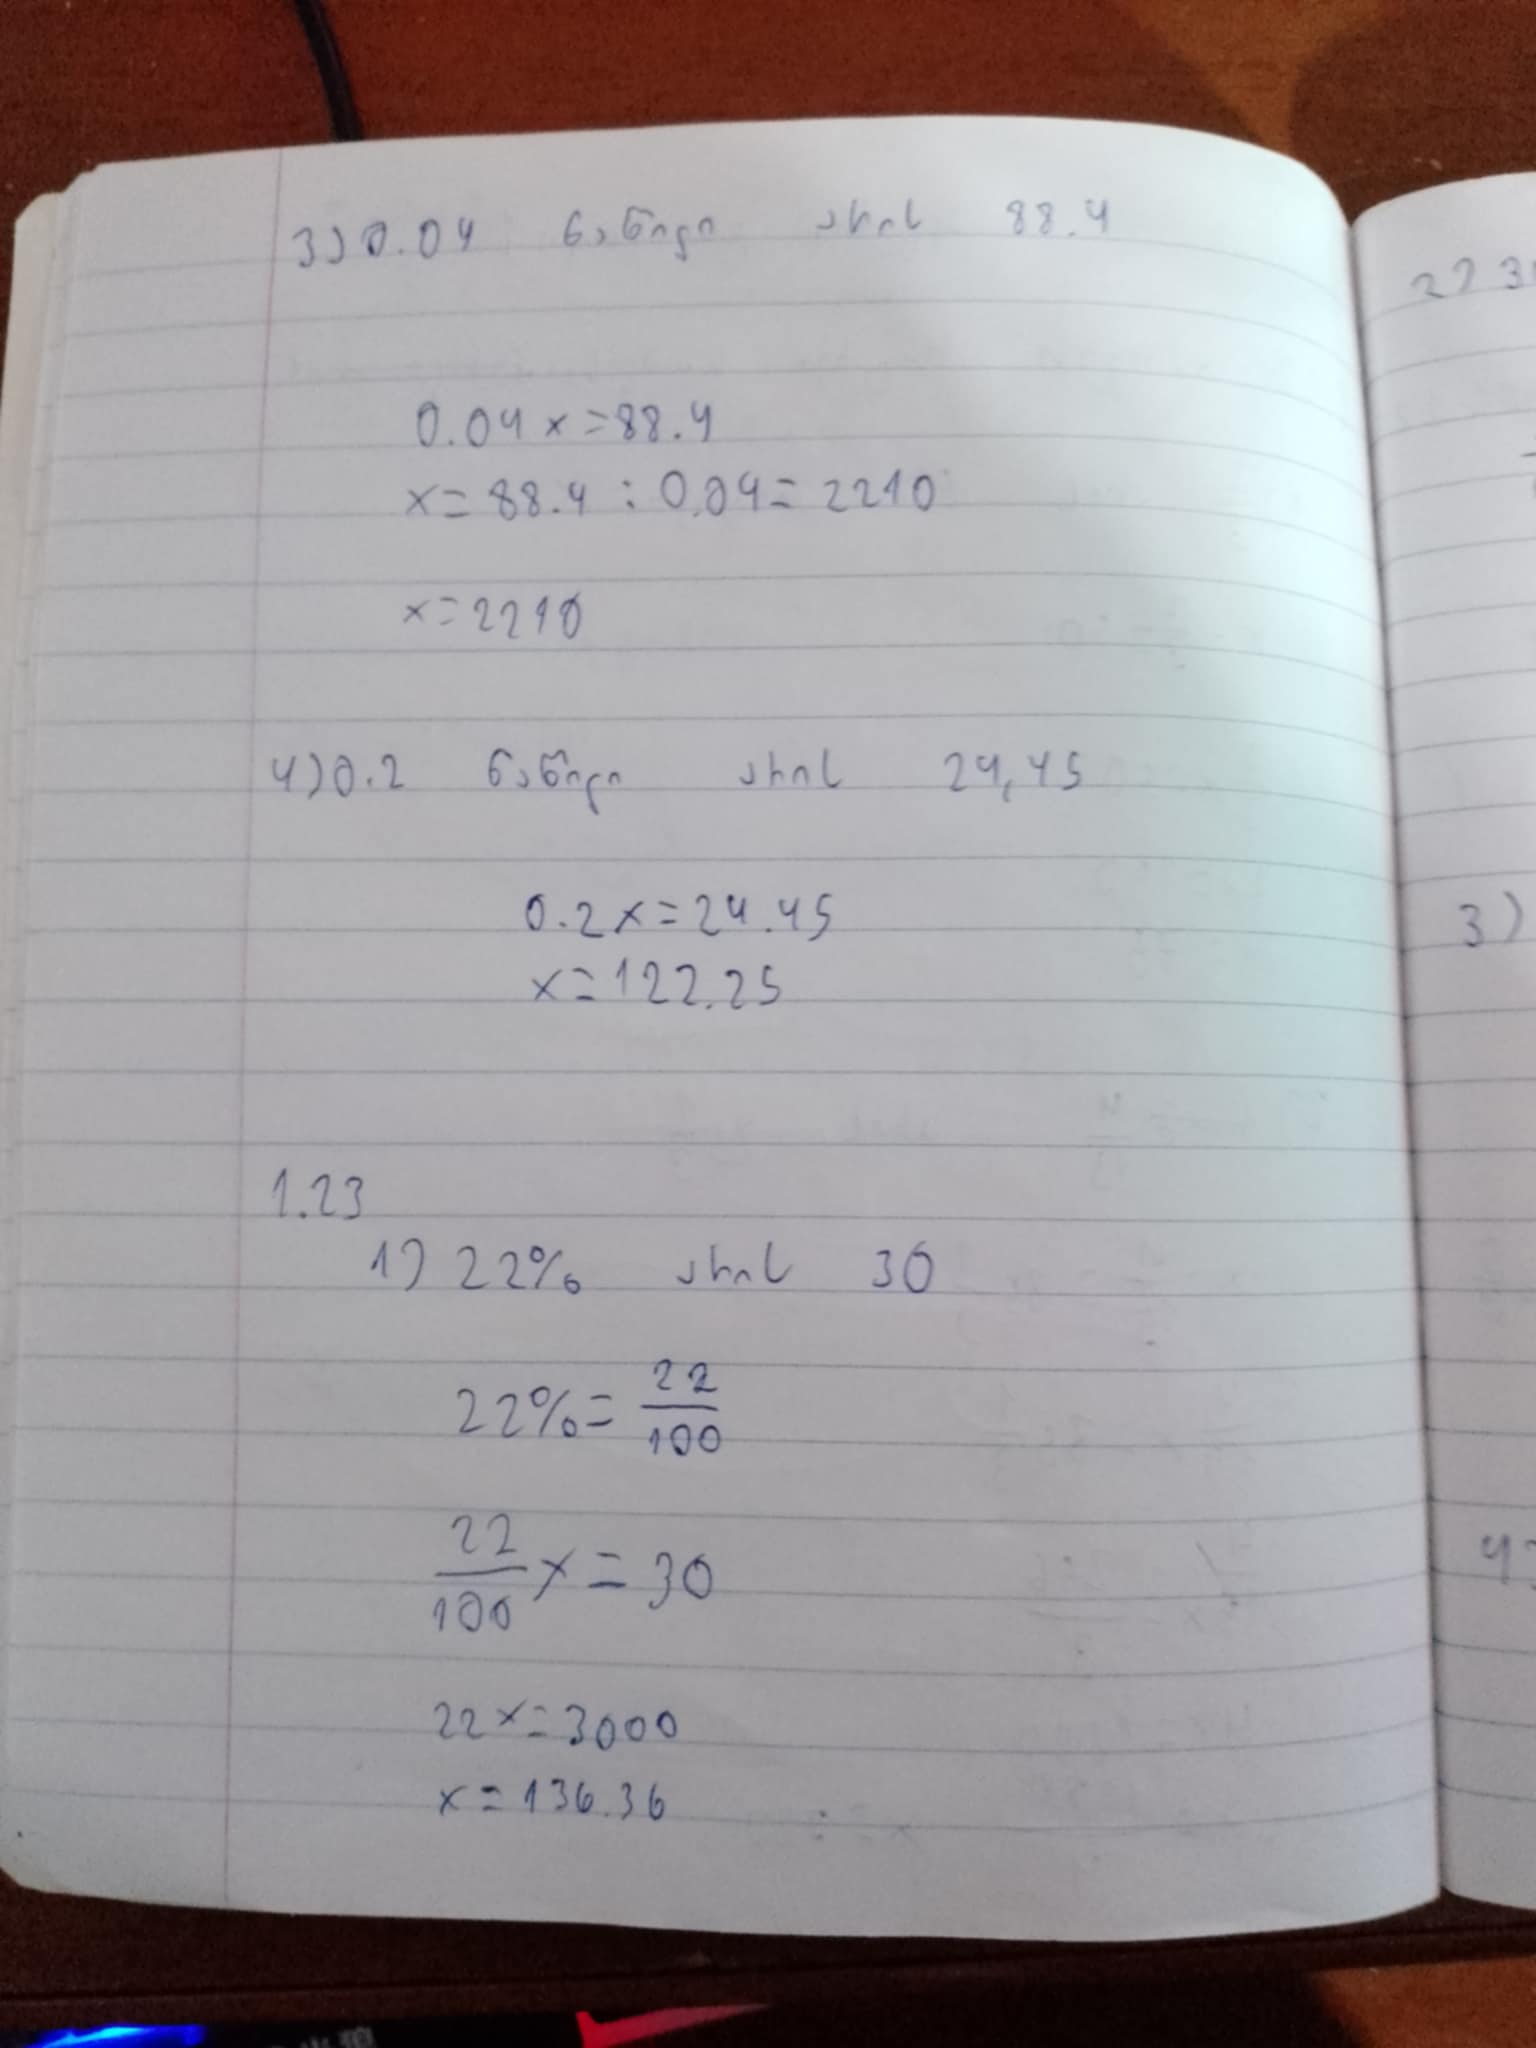 3) 0.04 ნაწილი არის 88.4
0.04 x = 88.4
x = 88.4 : 0.04 = 2210
x = 2210
4) 0.2 ნაწილი არის 24,45
0.2 x = 24.45
x = 122.25
1.23
1) 22% არის 30
22% = 22/100
22/100 x = 30
22 x = 3000
x = 136.36
2) 3
3)
4)